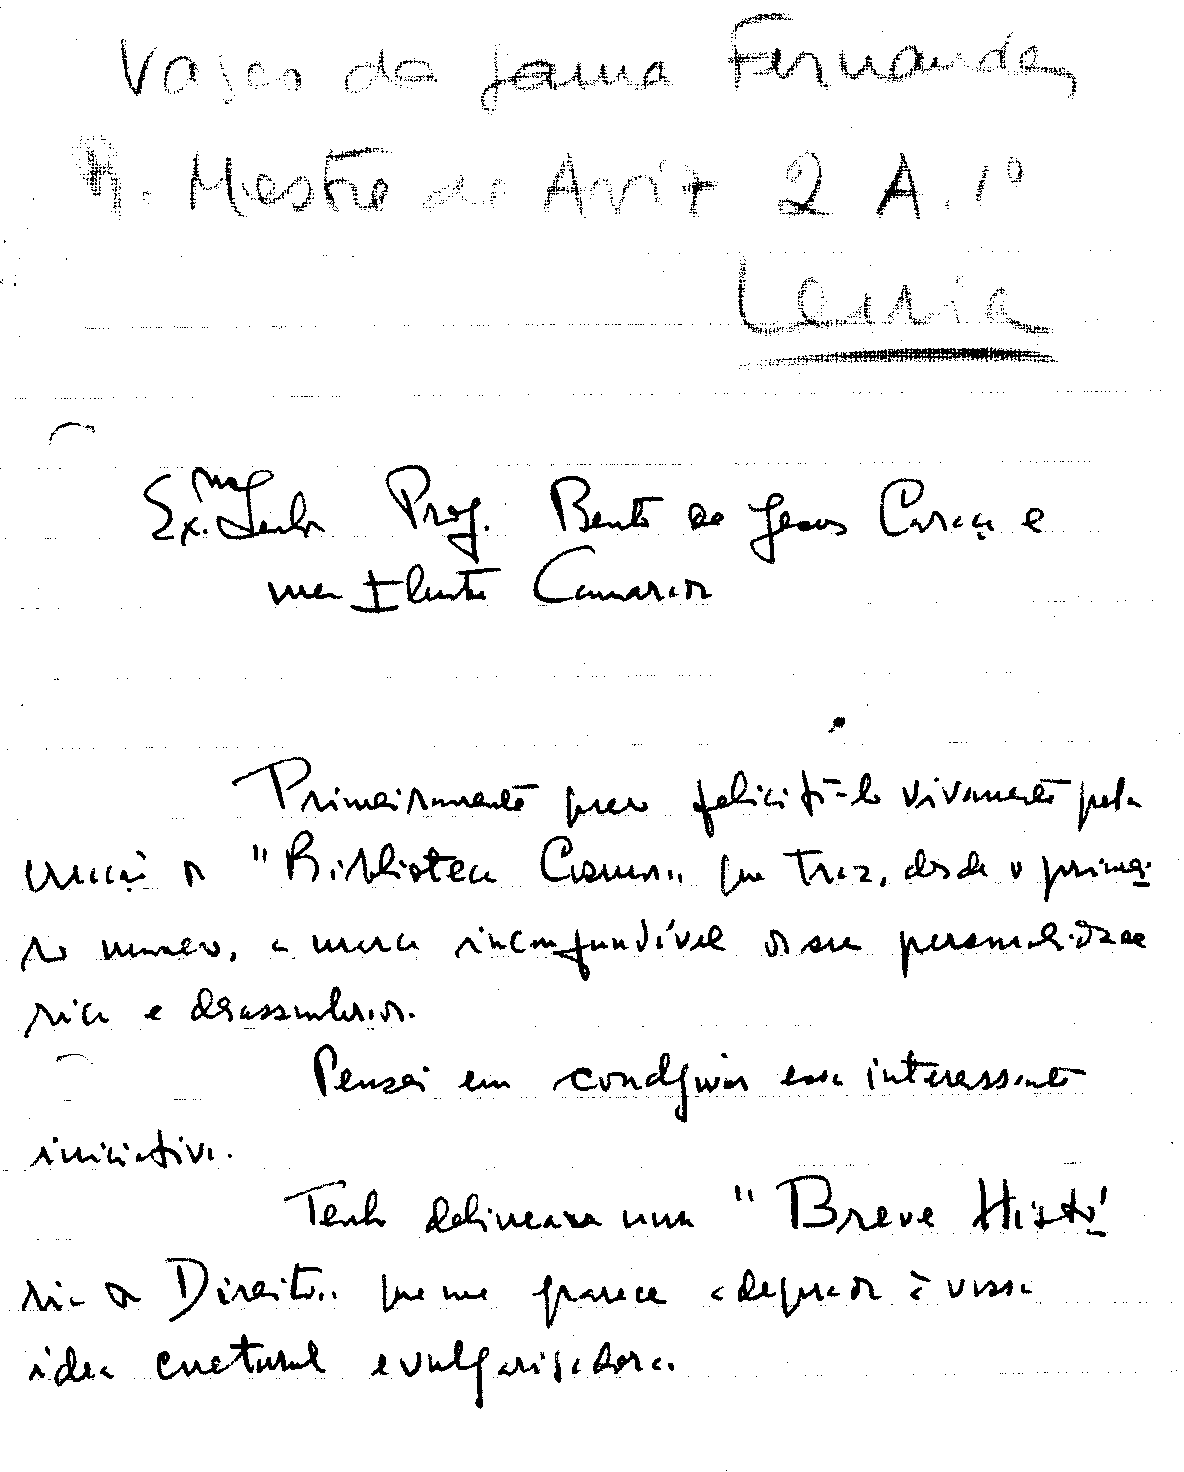 Vasco da Gama Fernandes
R. Mestre de Aviz 2 A. 1º
Leiria
Ex.mo Senhor Prof. Bento de Jesus Caraça e
meu Ilustre Camarada
Primeiramente quero felicitá-lo vivamente pela
creação da "Biblioteca Cosmos" que traz, desde o primei-
ro numero, a marca inconfundível da sua personalidade
rica e desassombrada.
Pensei em coadjuvar essa interessante
iniciativa.
Tenho delineada uma "Breve Histó-
ria do Direito" que me parece adequada à vossa
idea cultural e vulgarisadora.